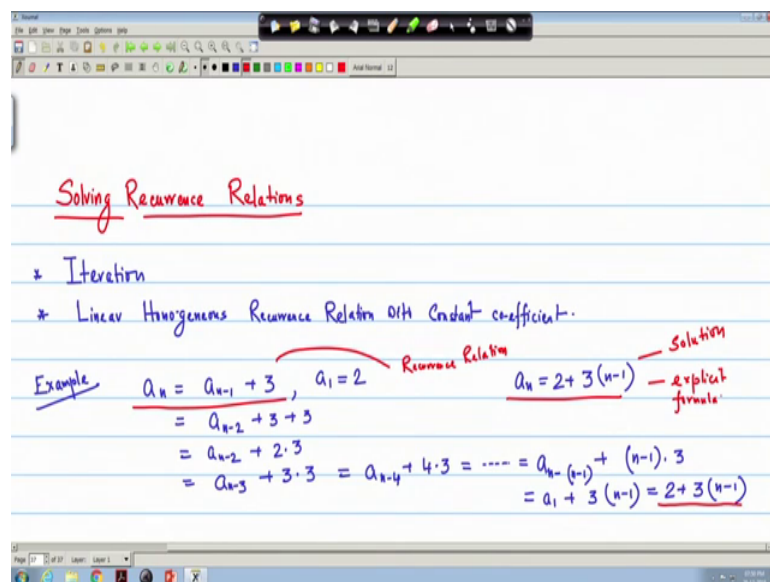 Journal
File Edit View Page Tools Options Help
Arial Normal 12
Solving Recurrence Relations
* Iteration
* Linear Homogeneous Recurrence Relation With Constant coefficient.
Example aₙ = aₙ₋₁ + 3 , a₁ = 2 Recurrence Relation aₙ = 2 + 3(n-1) — Solution
— explicit formula
= aₙ₋₂ + 3 + 3
= aₙ₋₂ + 2·3
= aₙ₋₃ + 3·3 = aₙ₋₄ + 4·3 = ····· = aₙ₋₍ₙ₋₁₎ + (n-1)·3
= a₁ + 3(n-1) = 2 + 3(n-1)
Page 37 of 37 Layer: Layer 1